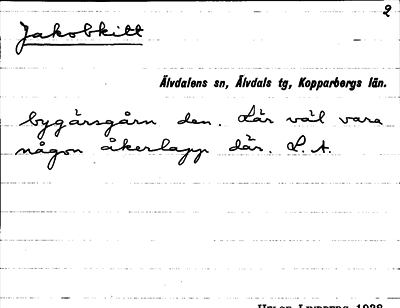 2
Jakobkitt
Älvdalens sn, Älvdals tg, Kopparbergs län.
bygärsgårn den. Lär väl vara
någon åkerlapp där. L. A.